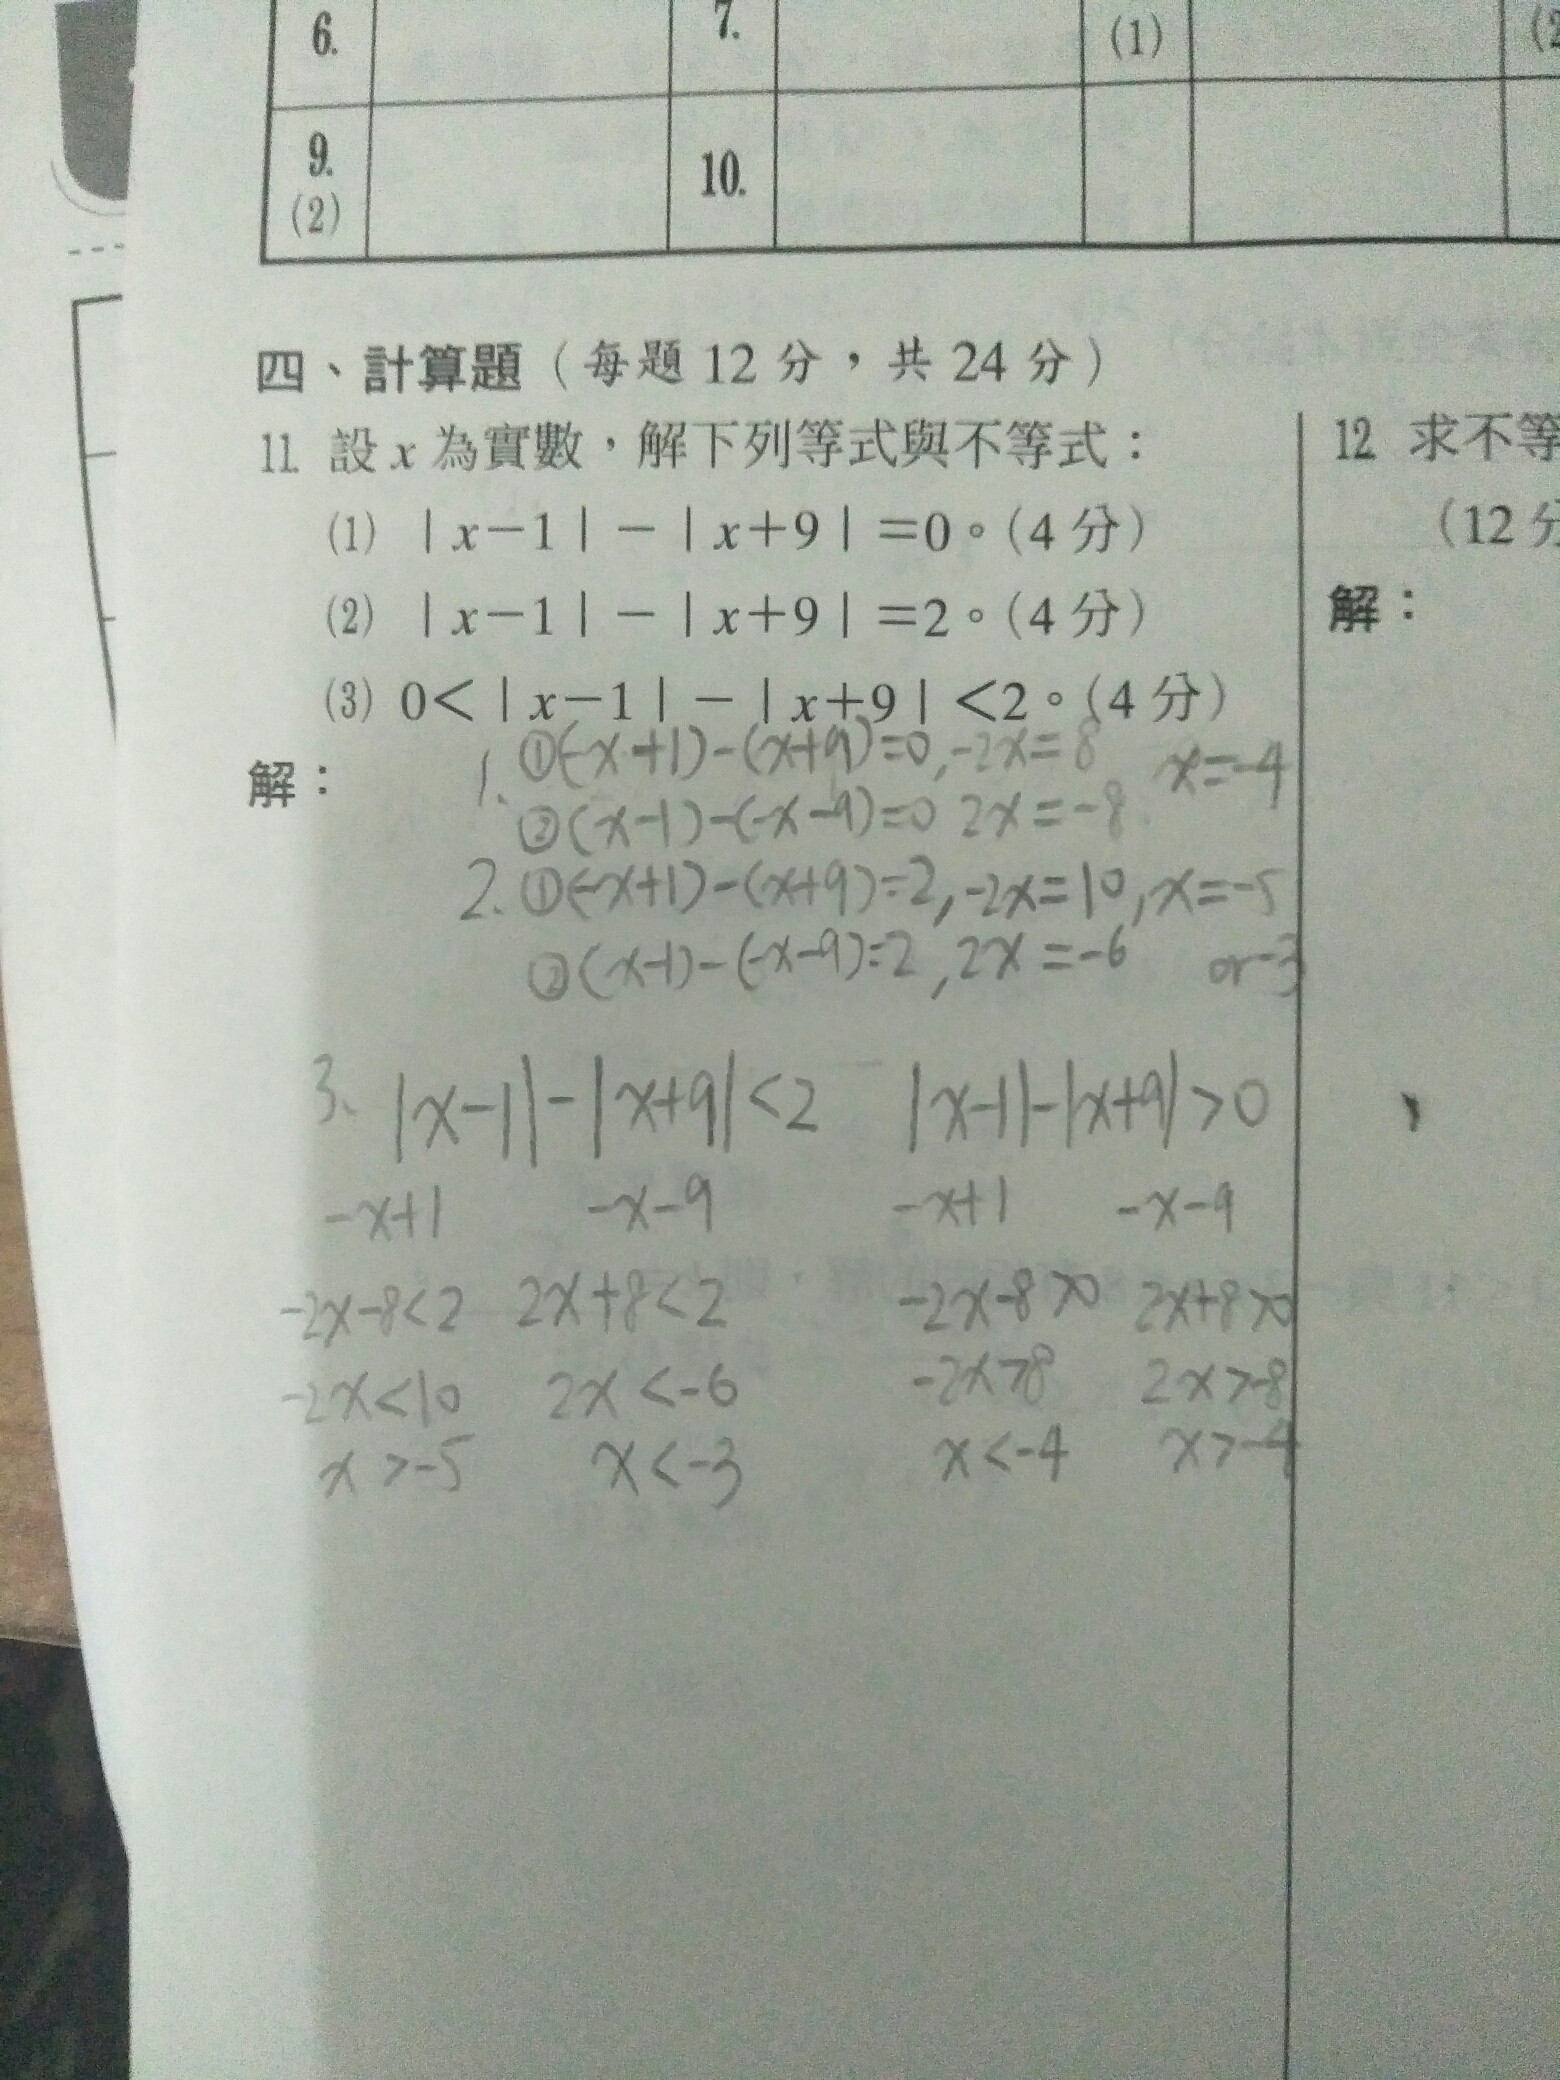 6. 7. (1) (2
9. 10.
(2)
四、計算題（每題 12 分，共 24 分）
11. 設 x 為實數，解下列等式與不等式：
(1) | x－1 | － | x＋9 | ＝0。(4 分)
(2) | x－1 | － | x＋9 | ＝2。(4 分)
(3) 0＜ | x－1 | － | x＋9 | ＜2。(4 分)
解：
1. ①(-x+1)-(x+9)=0, -2x=8 x=-4
②(x-1)-(-x-9)=0 2x=-8
2. ①(-x+1)-(x+9)=2, -2x=10, x=-5
②(x-1)-(-x-9)=2, 2x=-6 or-3
3. |x-1|-|x+9|<2 |x-1|-|x+9|>0
-x+1 -x-9 -x+1 -x-9
-2x-8<2 2x+8<2 -2x-8>0 2x+8>0
-2x<10 2x<-6 -2x>8 2x>-8
x>-5 x<-3 x<-4 x>-4
12. 求不等
(12 分
解：